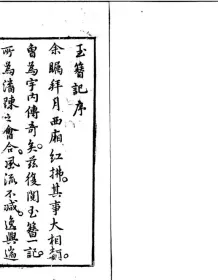 玉簪記序
余矚拜月西廂紅拂其事大相類
曾為宇內傳奇矣茲復閱玉簪一記
所為潘陳之會合風流不減逸興遄